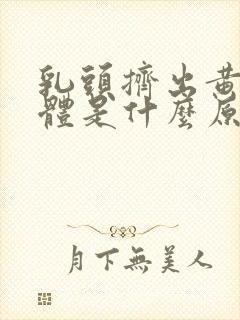 乳頭擠出黃
體是什麼原
月下無美人